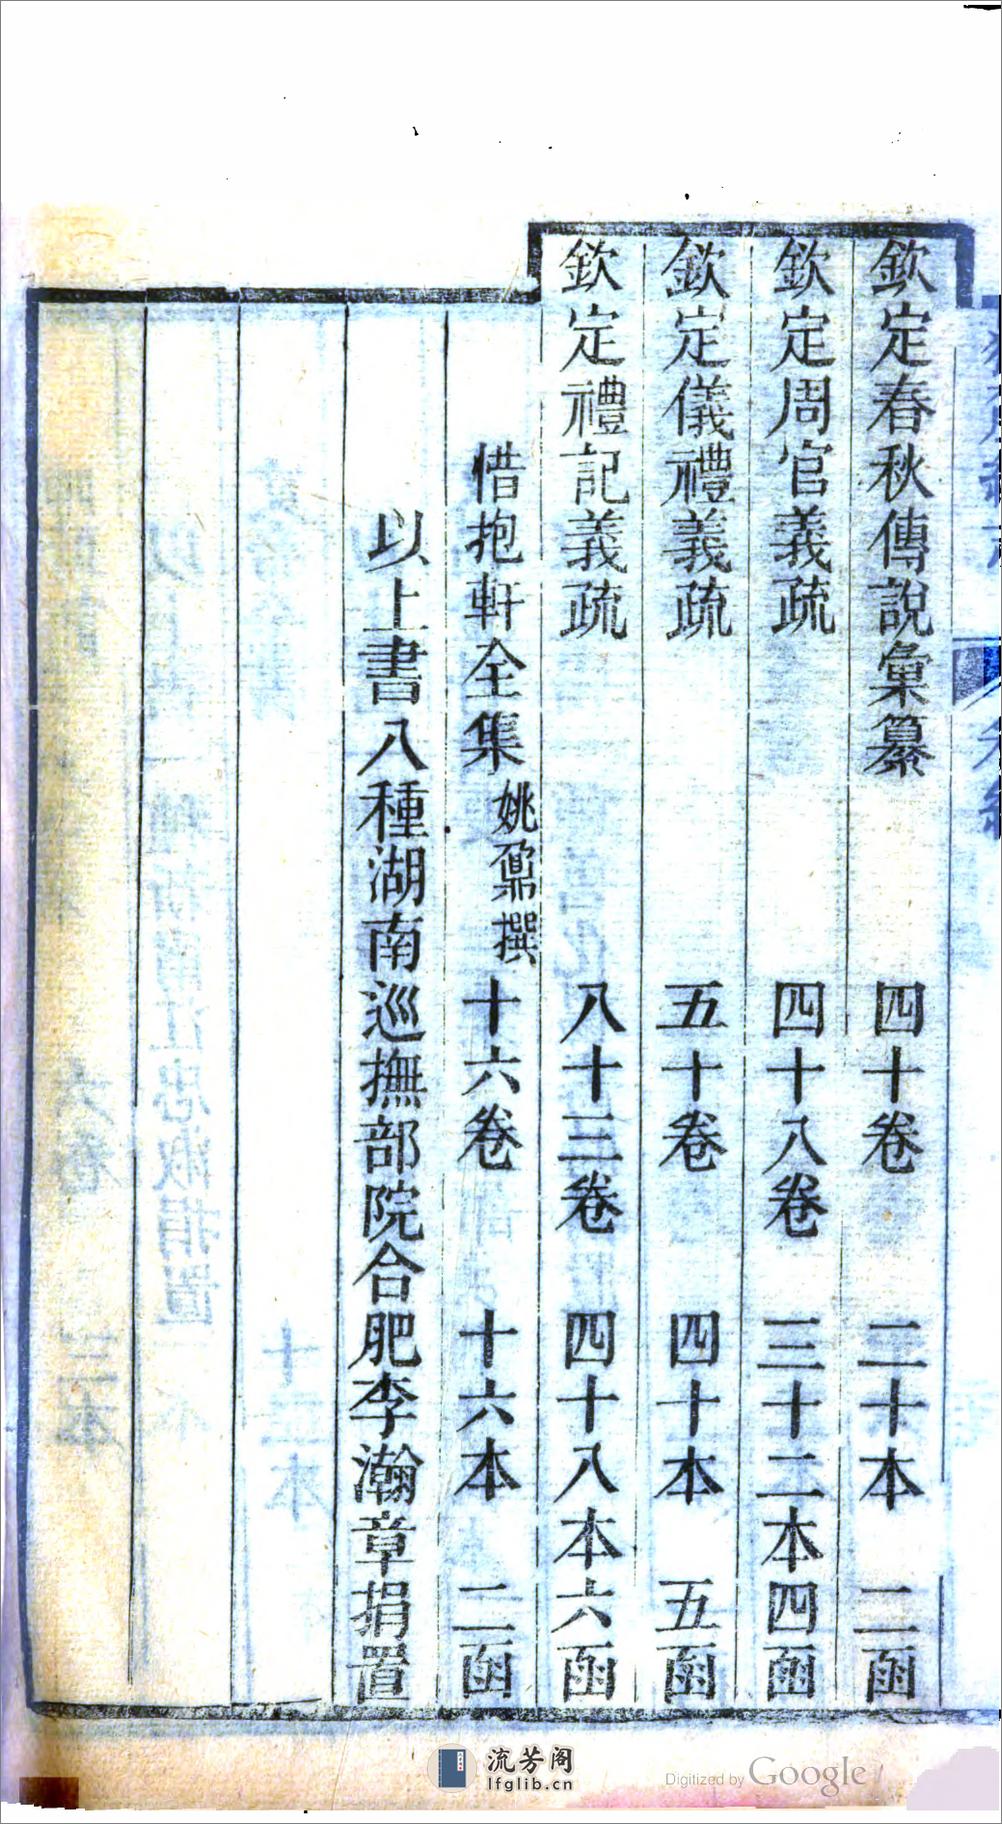 欽定春秋傳說彙纂 四十卷 二十本 二函
欽定周官義疏 四十八卷 三十二本 四函
欽定儀禮義疏 五十卷 四十本 五函
欽定禮記義疏 八十三卷 四十八本 六函
惜抱軒全集 姚鼐撰 十六卷 十六本 二函
以上書八種湖南巡撫部院合肥李瀚章捐置
流芳阁
lfglib.cn
Digitized by Google